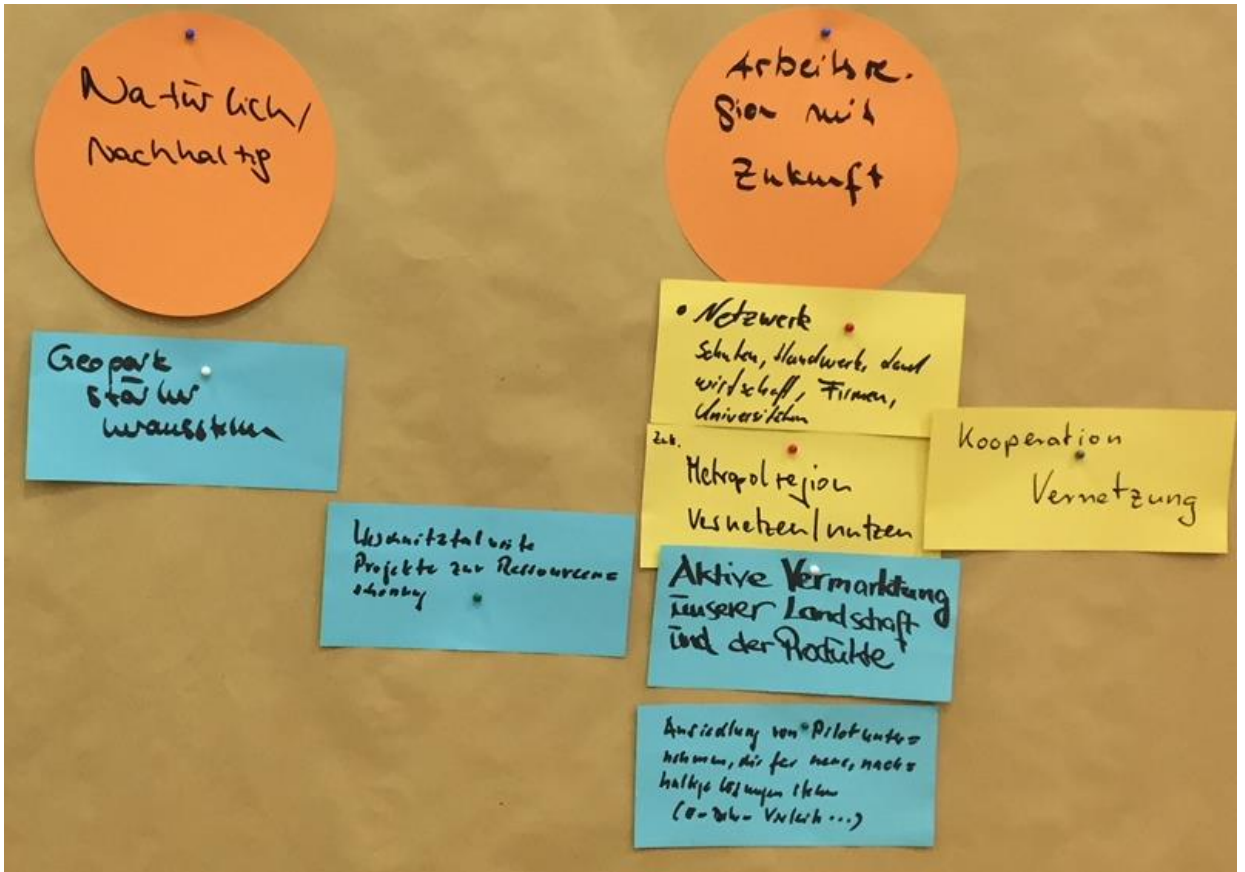 Natürlich/
Nachhaltig
Geopark
stärker
herausstellen
Weschnitztalweite
Projekte zur Ressourcen=
schonung
Arbeitsre-
gion mit
Zukunft
• Netzwerk
Schulen, Handwerk, Land
wirtschaft, Firmen,
Universitäten
Metropolregion
Vernetzen/nutzen
Kooperation
Vernetzung
Aktive Vermarktung
unserer Landschaft
und der Produkte
Ansiedlung von Pilotunter=
nehmen, die für neue, nach=
haltige Lösungen stehen
Verleih ...)